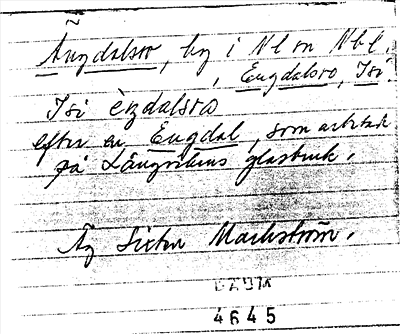 Ängdalsro, by i Nl on Nbl.
, Engdalsro, Isi
Isi èngdalsra
efter en Engdal, som arbetat
på Långvikens glasbruk.
Äg Sixten Markström.
4645